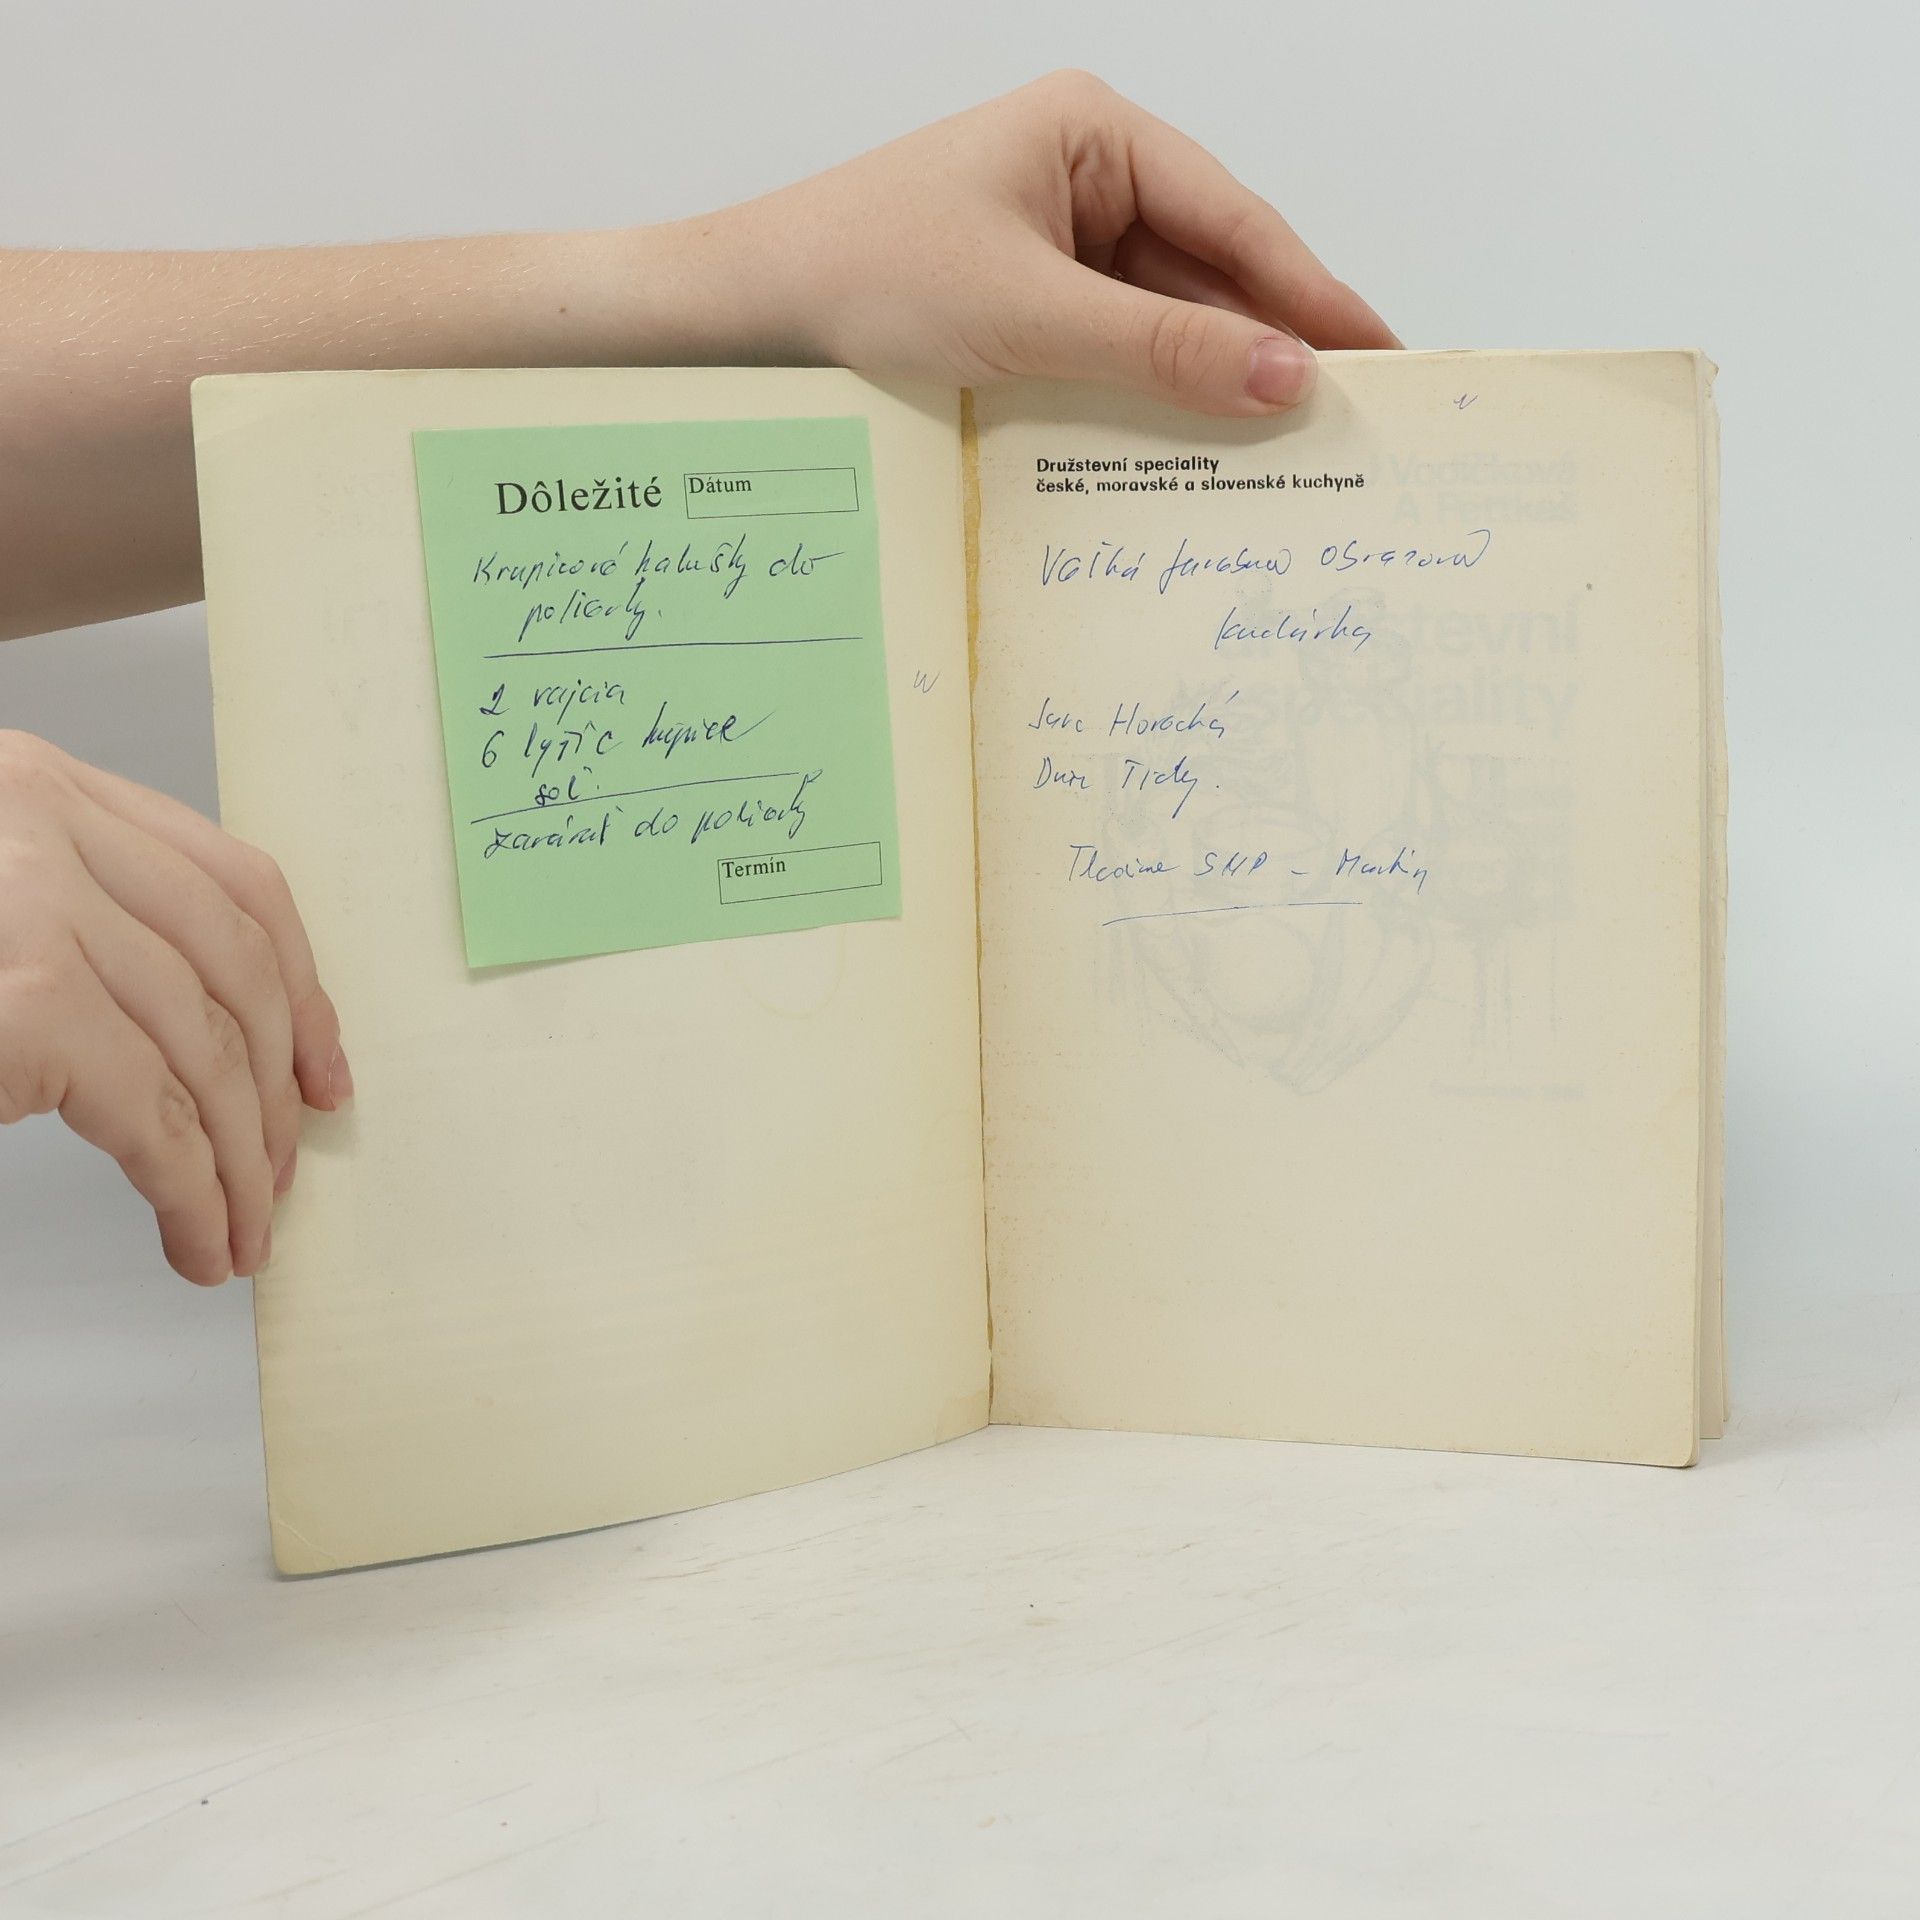 Dôležité
Dátum
Krupicové halušky do
polievky.
2 vajcia
6 lyžíc krupice
soľ.
zavárať do polievky
Termín
Družstevní speciality
české, moravské a slovenské kuchyně
Veľká farebná obrazová
kuchárka
Horecká
Tlačiarne SNP - Martin